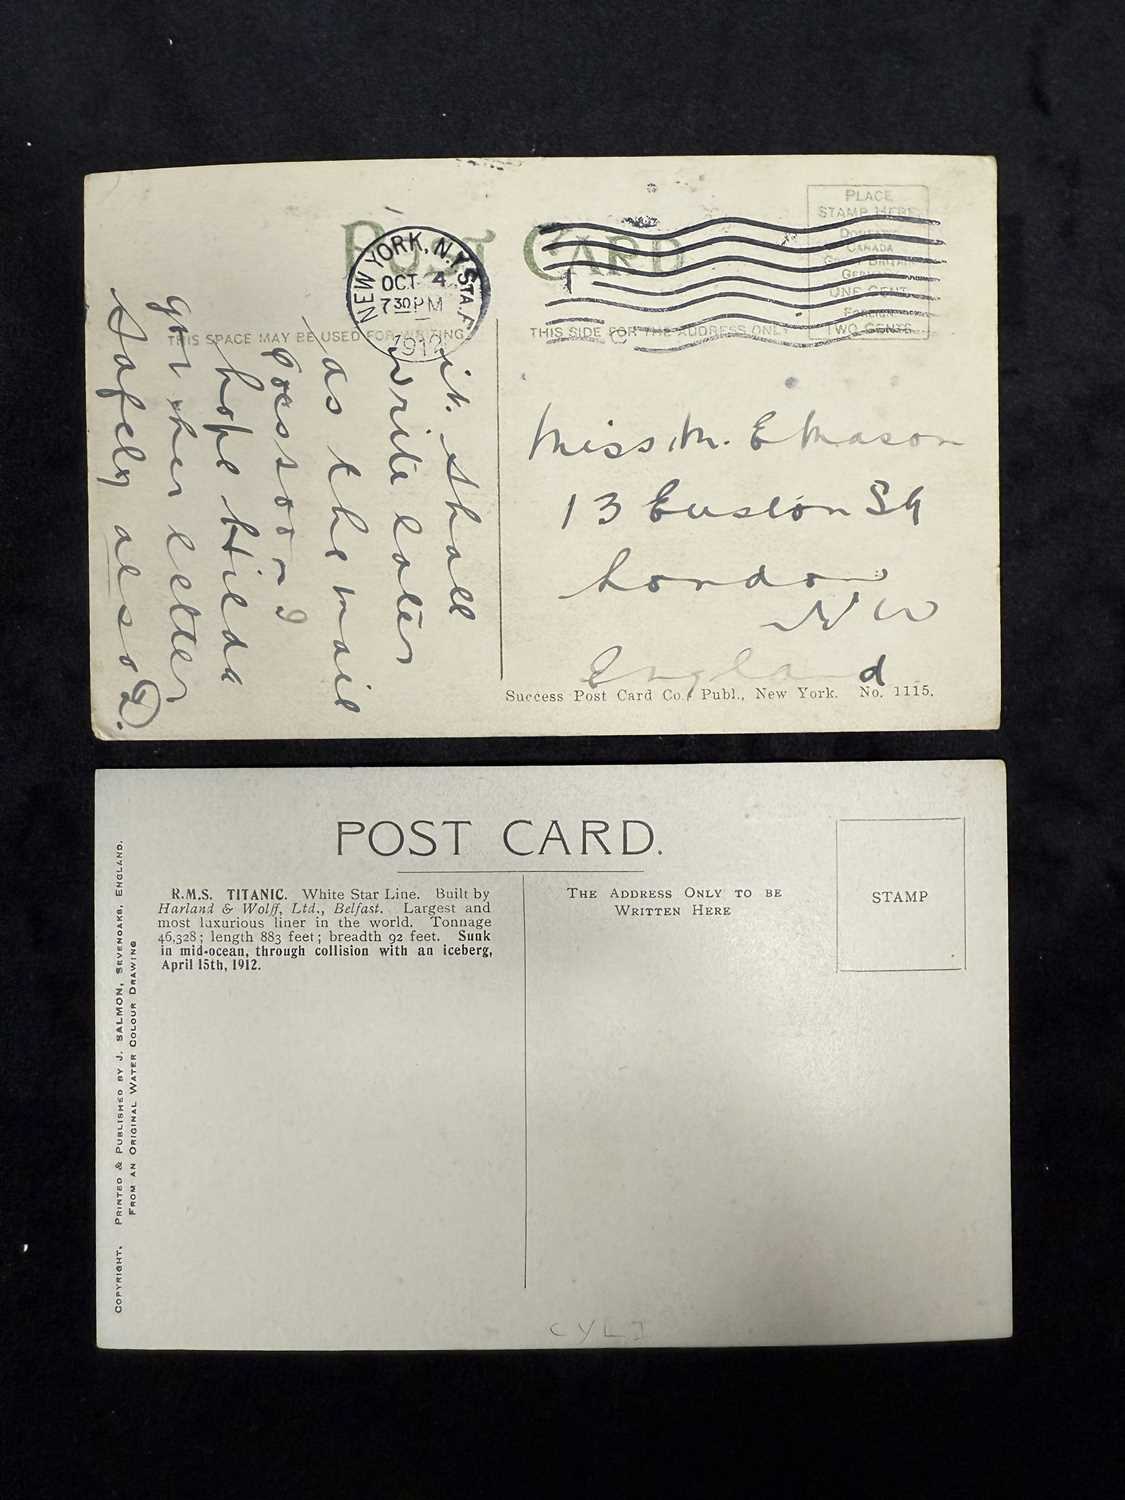 POST CARD
NEW YORK, N.Y. STA. F
OCT 4
7 30 PM
1912
PLACE
STAMP HERE
DOMESTIC
CANADA
GREAT BRITAIN
GERMANY
ONE CENT
FOREIGN
TWO CENTS
THIS SPACE MAY BE USED FOR WRITING
THIS SIDE FOR THE ADDRESS ONLY
it. Shall
write later
as the mail
goes soon I
hope Hilda
got her letter
safely also D.
Miss M. E Mason
13 Euston Sq
London
N W
England
Success Post Card Co., Publ., New York. No. 1115.
POST CARD.
R.M.S. TITANIC. White Star Line. Built by
Harland & Wolff, Ltd., Belfast. Largest and
most luxurious liner in the world. Tonnage
46,328; length 883 feet; breadth 92 feet. Sunk
in mid-ocean, through collision with an iceberg,
April 15th, 1912.
THE ADDRESS ONLY TO BE
WRITTEN HERE
STAMP
COPYRIGHT. PRINTED & PUBLISHED BY J. SALMON, SEVENOAKS, ENGLAND.
FROM AN ORIGINAL WATER COLOUR DRAWING